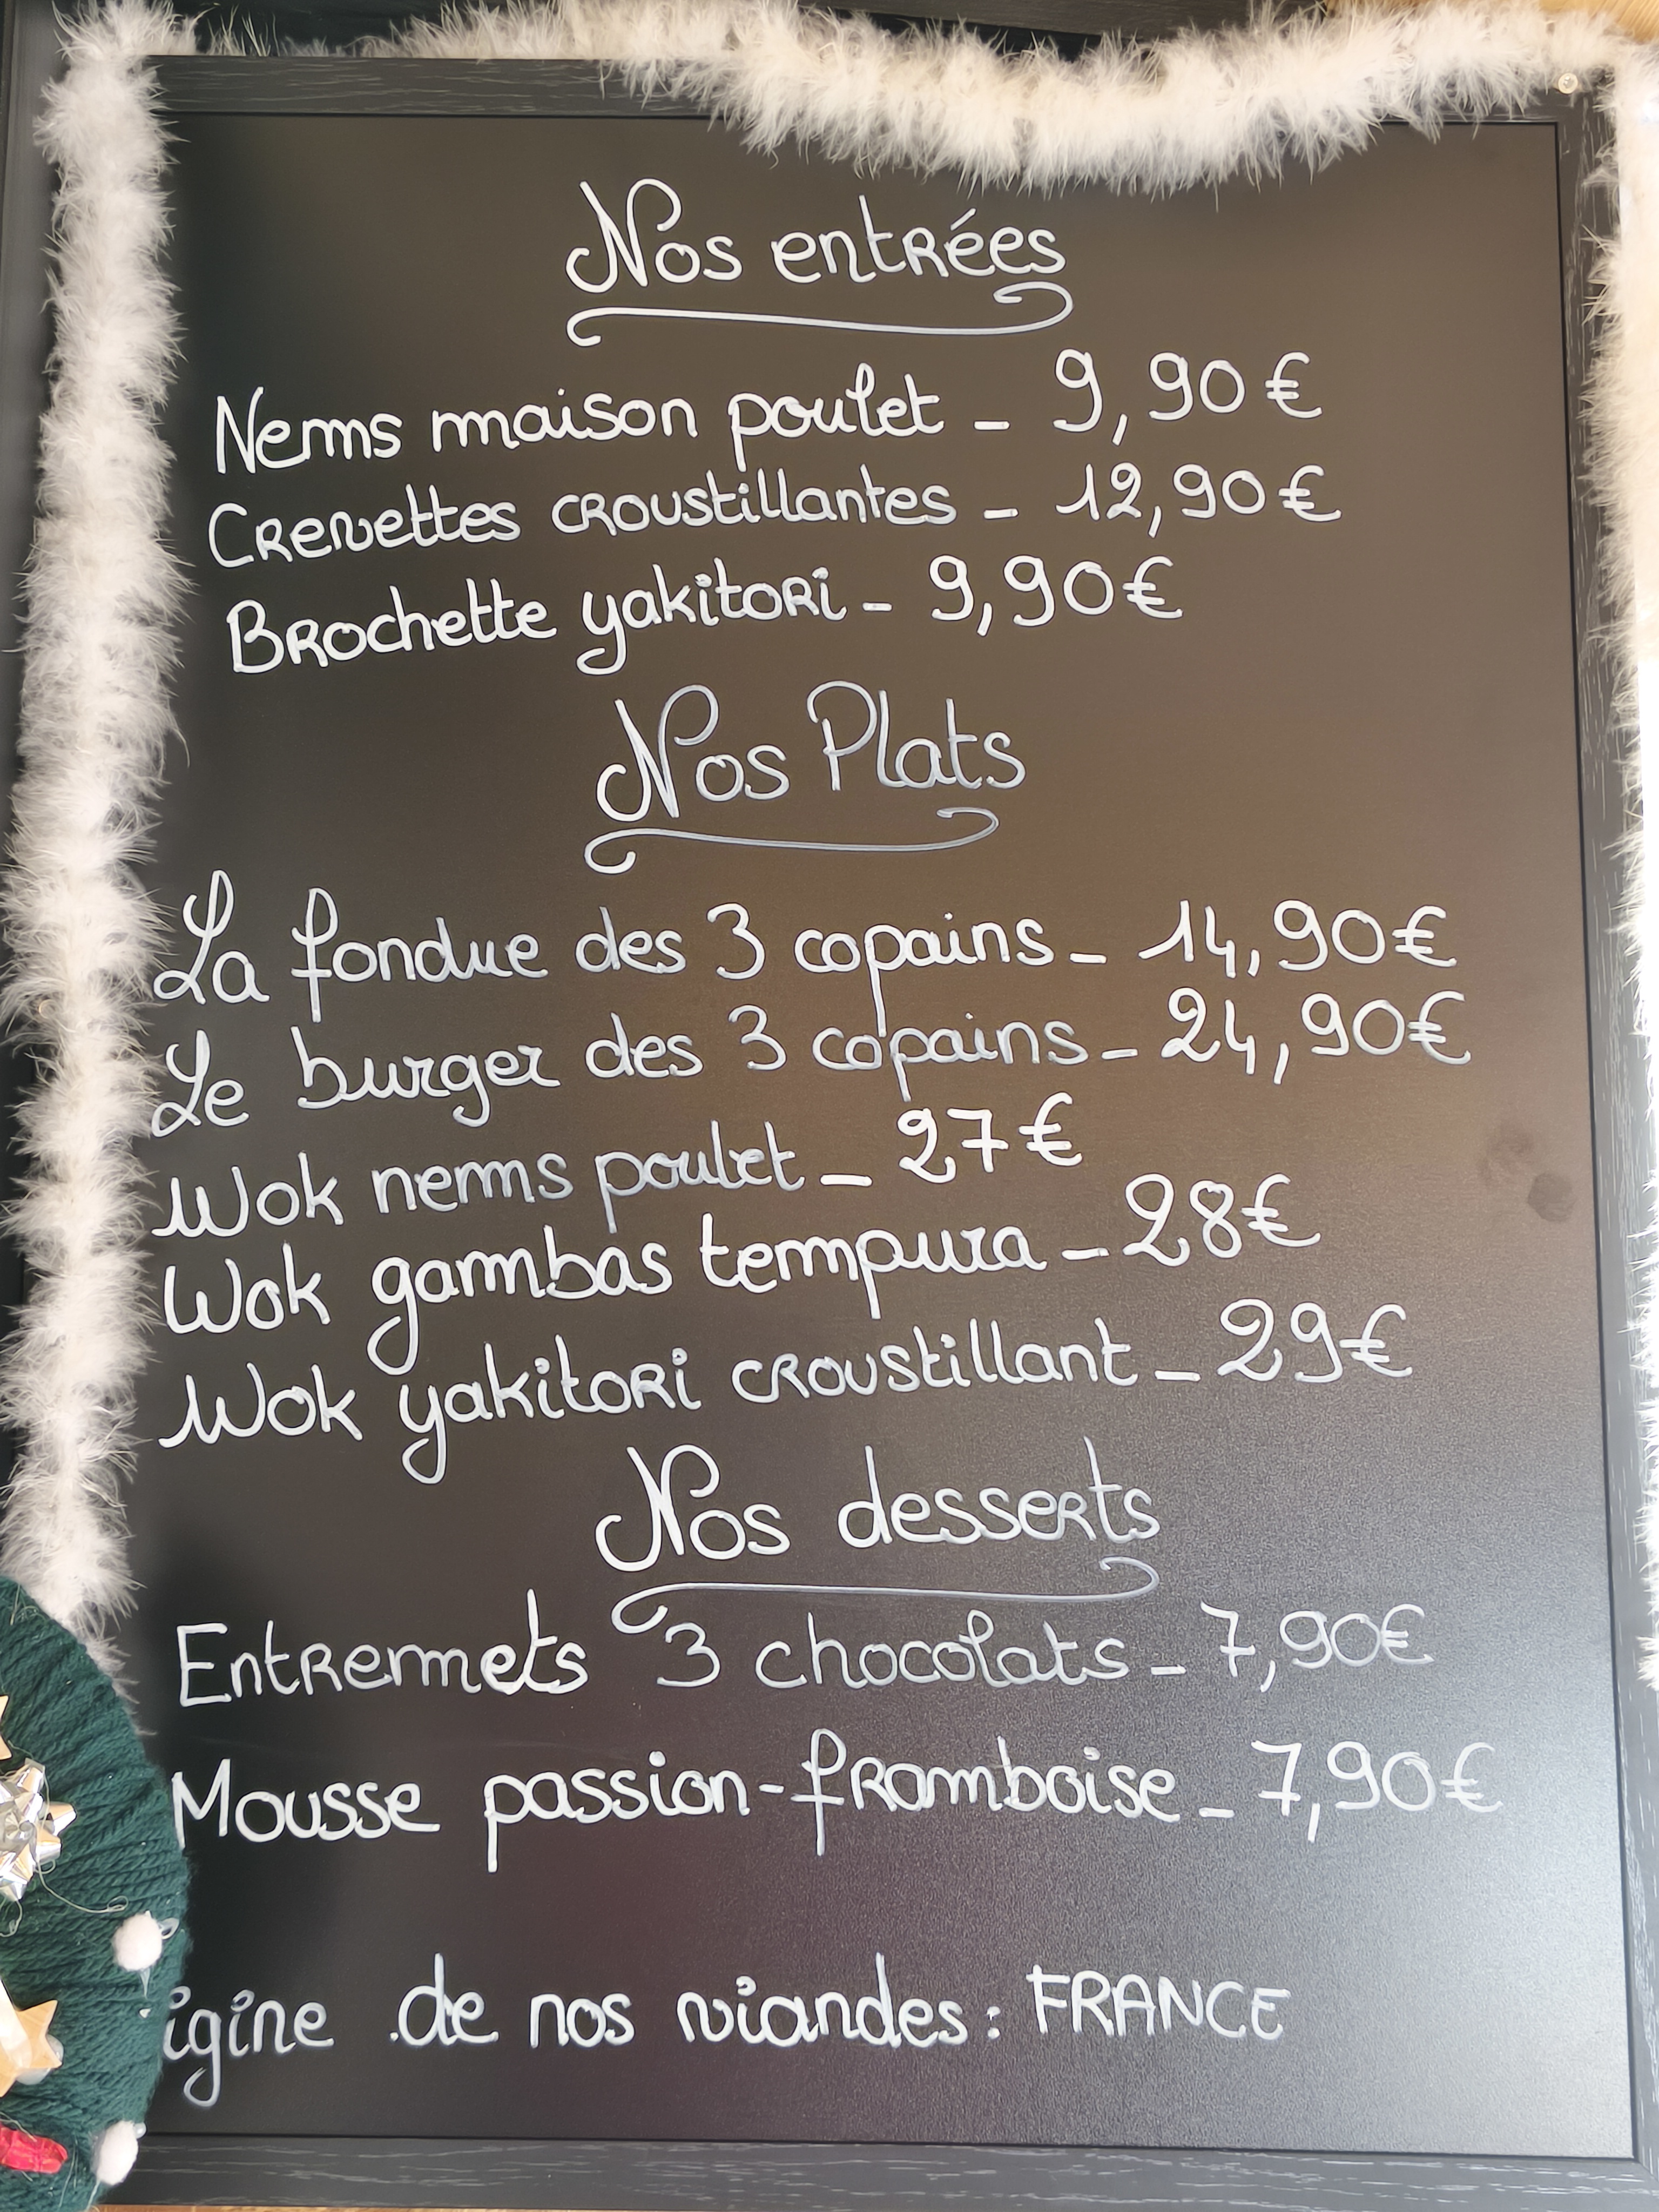 Nos entrées
Nems maison poulet - 9,90€
Crevettes croustillantes - 12,90€
Brochette yakitori - 9,90€
Nos Plats
La fondue des 3 copains - 14,90€
Le burger des 3 copains - 24,90€
Wok nems poulet - 27€
Wok gambas tempura - 28€
Wok yakitori croustillant - 29€
Nos desserts
Entremets 3 chocolats - 7,90€
Mousse passion-framboise - 7,90€
igine de nos viandes : FRANCE